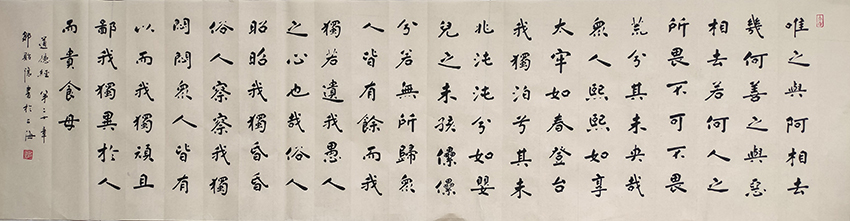 唯之與阿相去
幾何善之與惡
相去若何人之
所畏不可不畏
荒兮其未央哉
衆人熙熙如享
太牢如春登台
我獨泊兮其未
兆沌沌兮如嬰
兒之未孩儽儽
兮若無所歸衆
人皆有餘而我
獨若遺我愚人
之心也哉俗人
昭昭我獨昏昏
俗人察察我獨
悶悶衆人皆有
以而我獨頑且
鄙我獨異於人
而貴食母
道德經第二十章
書於上海